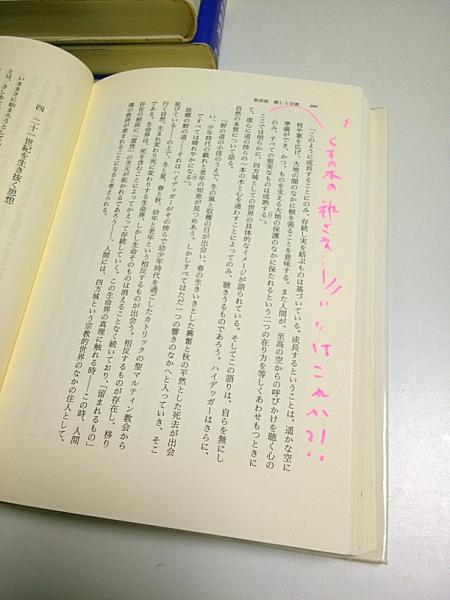 第四部 癒しと宗教
くすの木の
はこれか!!
「このように成長することにのみ、存続し実を結ぶものは基づいている。成長するということは、遥かな空に
枝や葉を広げ、大地の闇のなかに根を張ることを意味する。また人間が、至高の空からの呼びかけを聴く心の
準備ができ、かつ、ものを支える大地の保護のなかに保たれるという二つの在り方を等しくあわせもつときに
のみ、すべての堅実なものは成熟する」
ここでは明らかに、四方域としての世界の具体的なイメージが語られている。そしてこの語りは、自らを無にし
て、虚心に道の傍らの一本の木と心を通わすことによってのみ、聴きうるものであろう。ハイデッガーはさらに、
自然の本質について語る。
「野の道の小径のうえで、冬の嵐と収穫の日が出会い、春の生きいきとした興奮と秋の平然とした死去が出会
い、少年時代の戯れと老年の知恵が見つめあう。しかしすべてはただ一つの響きのなかへと入っていき、そこ
ではすべては晴れやかになる」
故郷の野の道――それはハイデッガーがその傍らで幼少年時代を過ごしたカトリックの聖マルティン教会から
延びている――の上で、冬と夏、春と秋、幼年と老年という相反するものが出会う。
行く自然。生が死に変わり死が生に変わりする生命界。しかし生命そのものは消えることなく続いており、「留まれるもの」
である。生命界は、死を含むことによってかえって存続していく。この生命界の真理に触れる時――この時、人間
存在の根底に「霊性」の次元が拓かれるであろう――人間には、四方域という宗教的世界のなかの住人として、
魂の救済が恵まれることになると考えられる。
四 二十一世紀を生き抜く思想
いままさに始まろうとして
とは、さしあ